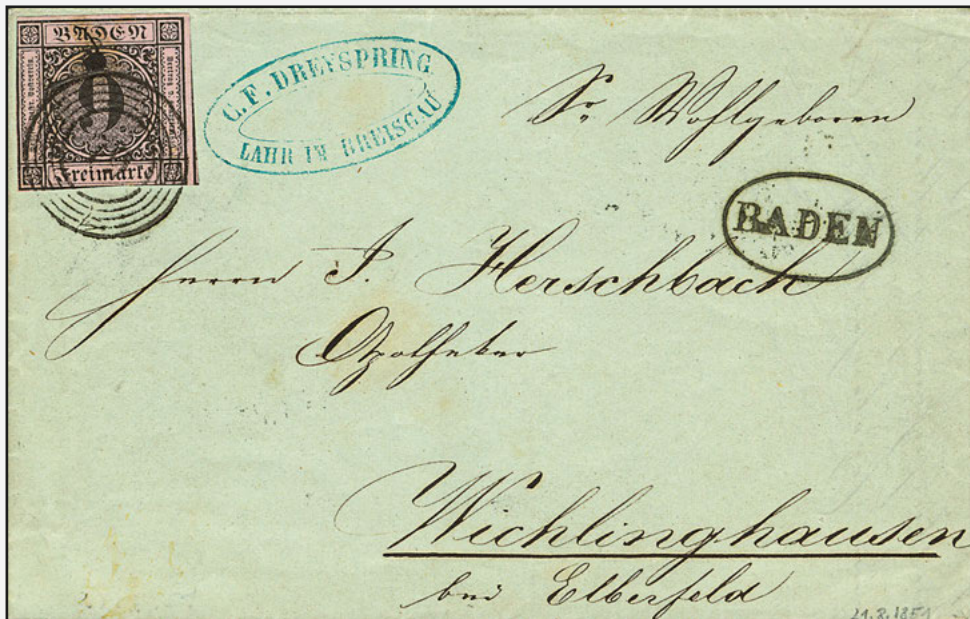 BADEN
9
Freimarke
C. F. DREYSPRING
LAHR IM BREISGAU
Sr. Wohlgeboren
BADEN
Herrn J. Herschbach
Apotheker
Wichlinghausen
bei Elberfeld
21.8.1851